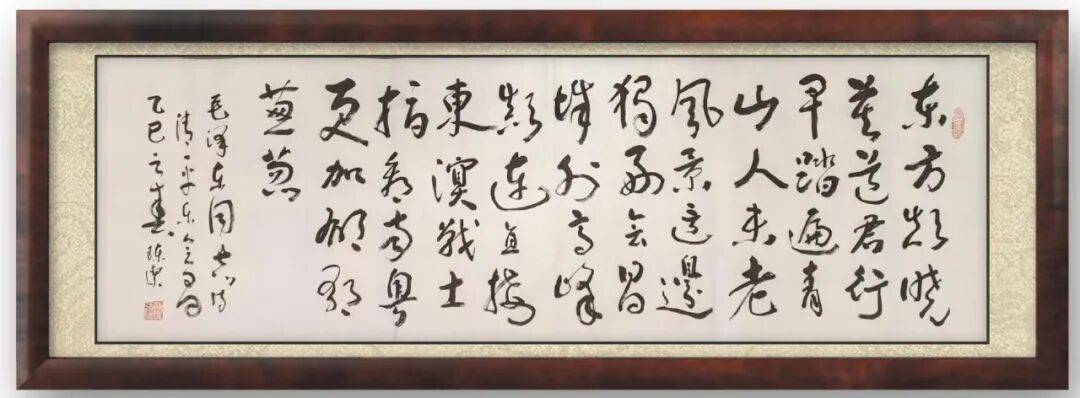 东方欲晓
莫道君行
早踏遍青
山人未老
風景这邊
獨好会昌
城外高峰
颠连直接
東溟戰士
指看南粤
更加郁郁
葱葱
毛泽东同志诗
清平乐会昌
乙巳之春